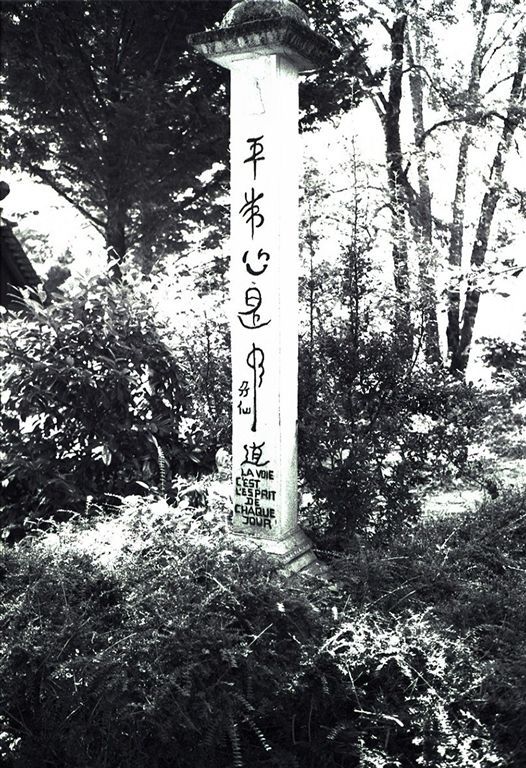 平常心是中道
LA VOIE
C'EST
L'ESPRIT
DE
CHAQUE
JOUR